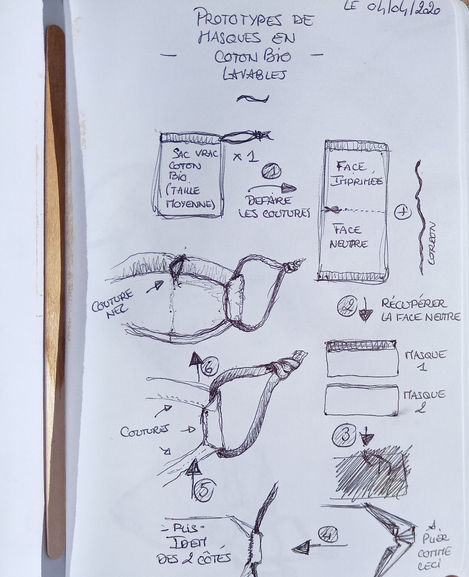 LE 04/04/2020
PROTOTYPES DE
MASQUES EN
— COTON BIO —
LAVABLES
SAC VRAC
COTON
BIO
(TAILLE
MOYENNE)
x 1
①
DEFAIRE
LES COUTURES
FACE
IMPRIMÉE
FACE
NEUTRE
+
CORDON
② RÉCUPÉRER
LA FACE NEUTRE
COUTURE
NEZ
MASQUE
1
MASQUE
2
③
⑥
COUTURES
⑤
- PLIS -
IDEM
DES 2 CÔTÉS
④
PLIER
COMME
CECI